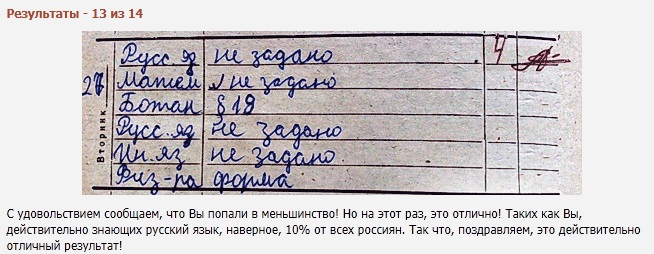 Результаты - 13 из 14
Русс. яз не задано 4
27 Матем не задано
Ботан § 19
Русс. яз не задано
Ин. яз не задано
Физ-ра форма
Вторник
С удовольствием сообщаем, что Вы попали в меньшинство! Но на этот раз, это отлично! Таких как Вы,
действительно знающих русский язык, наверное, 10% от всех россиян. Так что, поздравляем, это действительно
отличный результат!